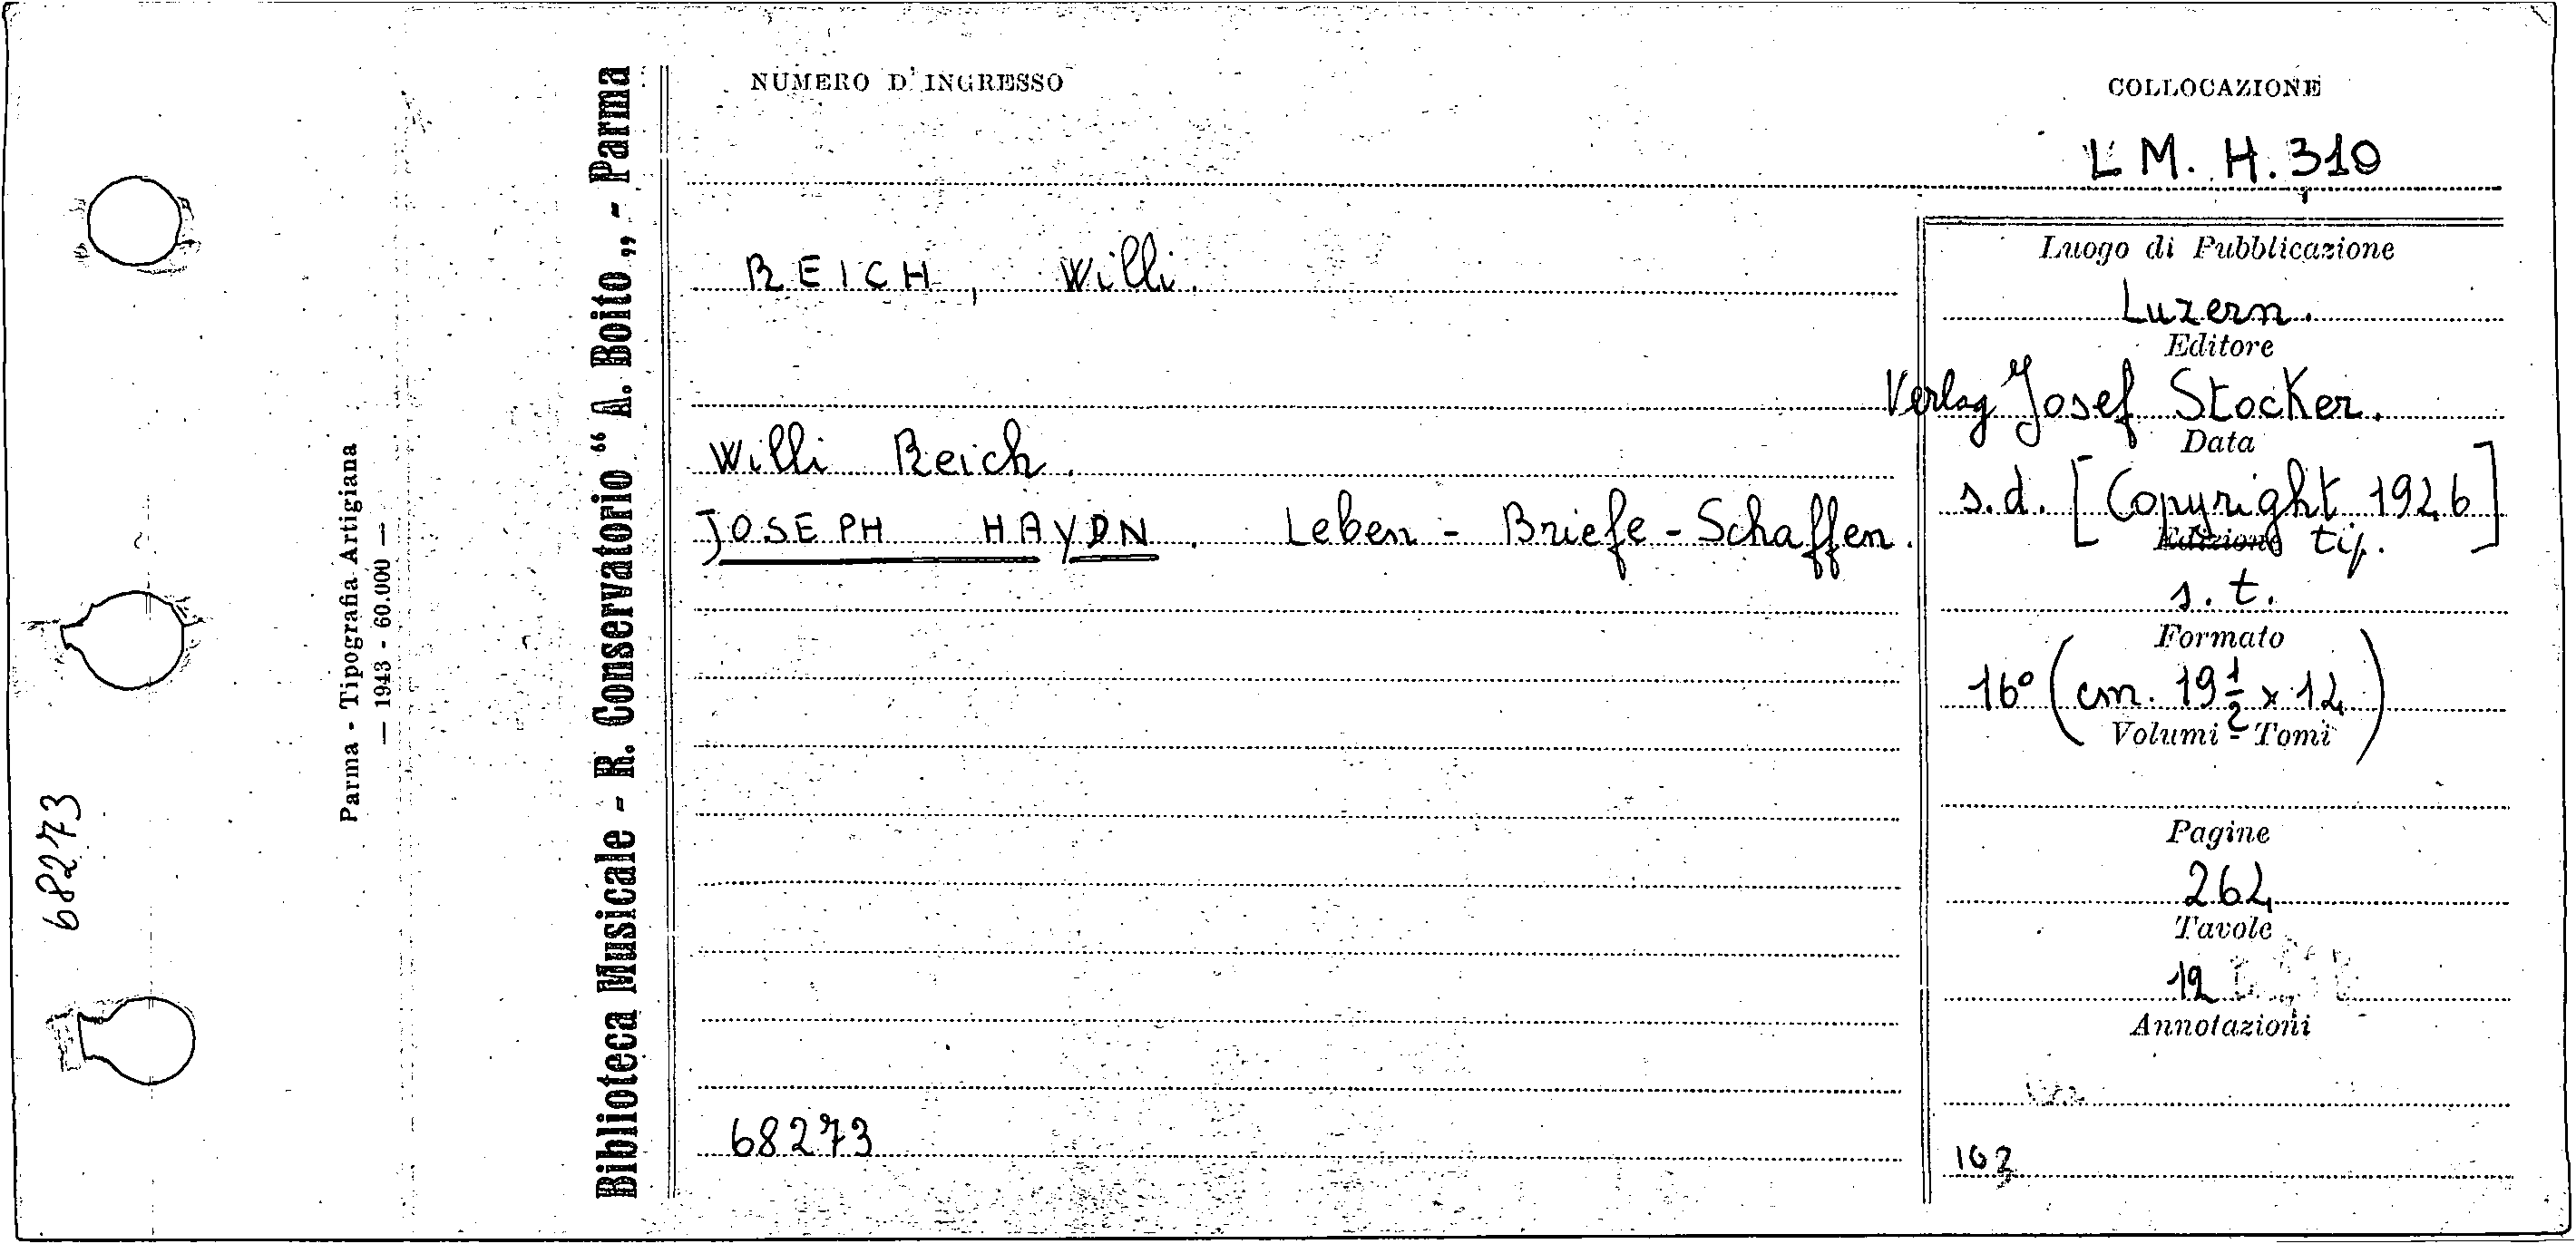 NUMERO D'INGRESSO
COLLOCAZIONE
L M. H. 310
REICH, Willi.
Willi Reich.
JOSEPH HAYDN. Leben - Briefe - Schaffen.
68273
Luogo di Pubblicazione
Luzern.
Editore
Verlag Josef Stocker.
Data
s.d. [Copyright 1946]
Edizione tip.
s. t.
Formato
16° (cm. 19 1/2 x 12)
Volumi - Tomi
Pagine
262
Tavole
12
Annotazioni
103
Biblioteca Musicale - R. Conservatorio “ A. Boito „ - Parma
Parma - Tipografia Artigiana
— 1943 - 60.000 —
68273